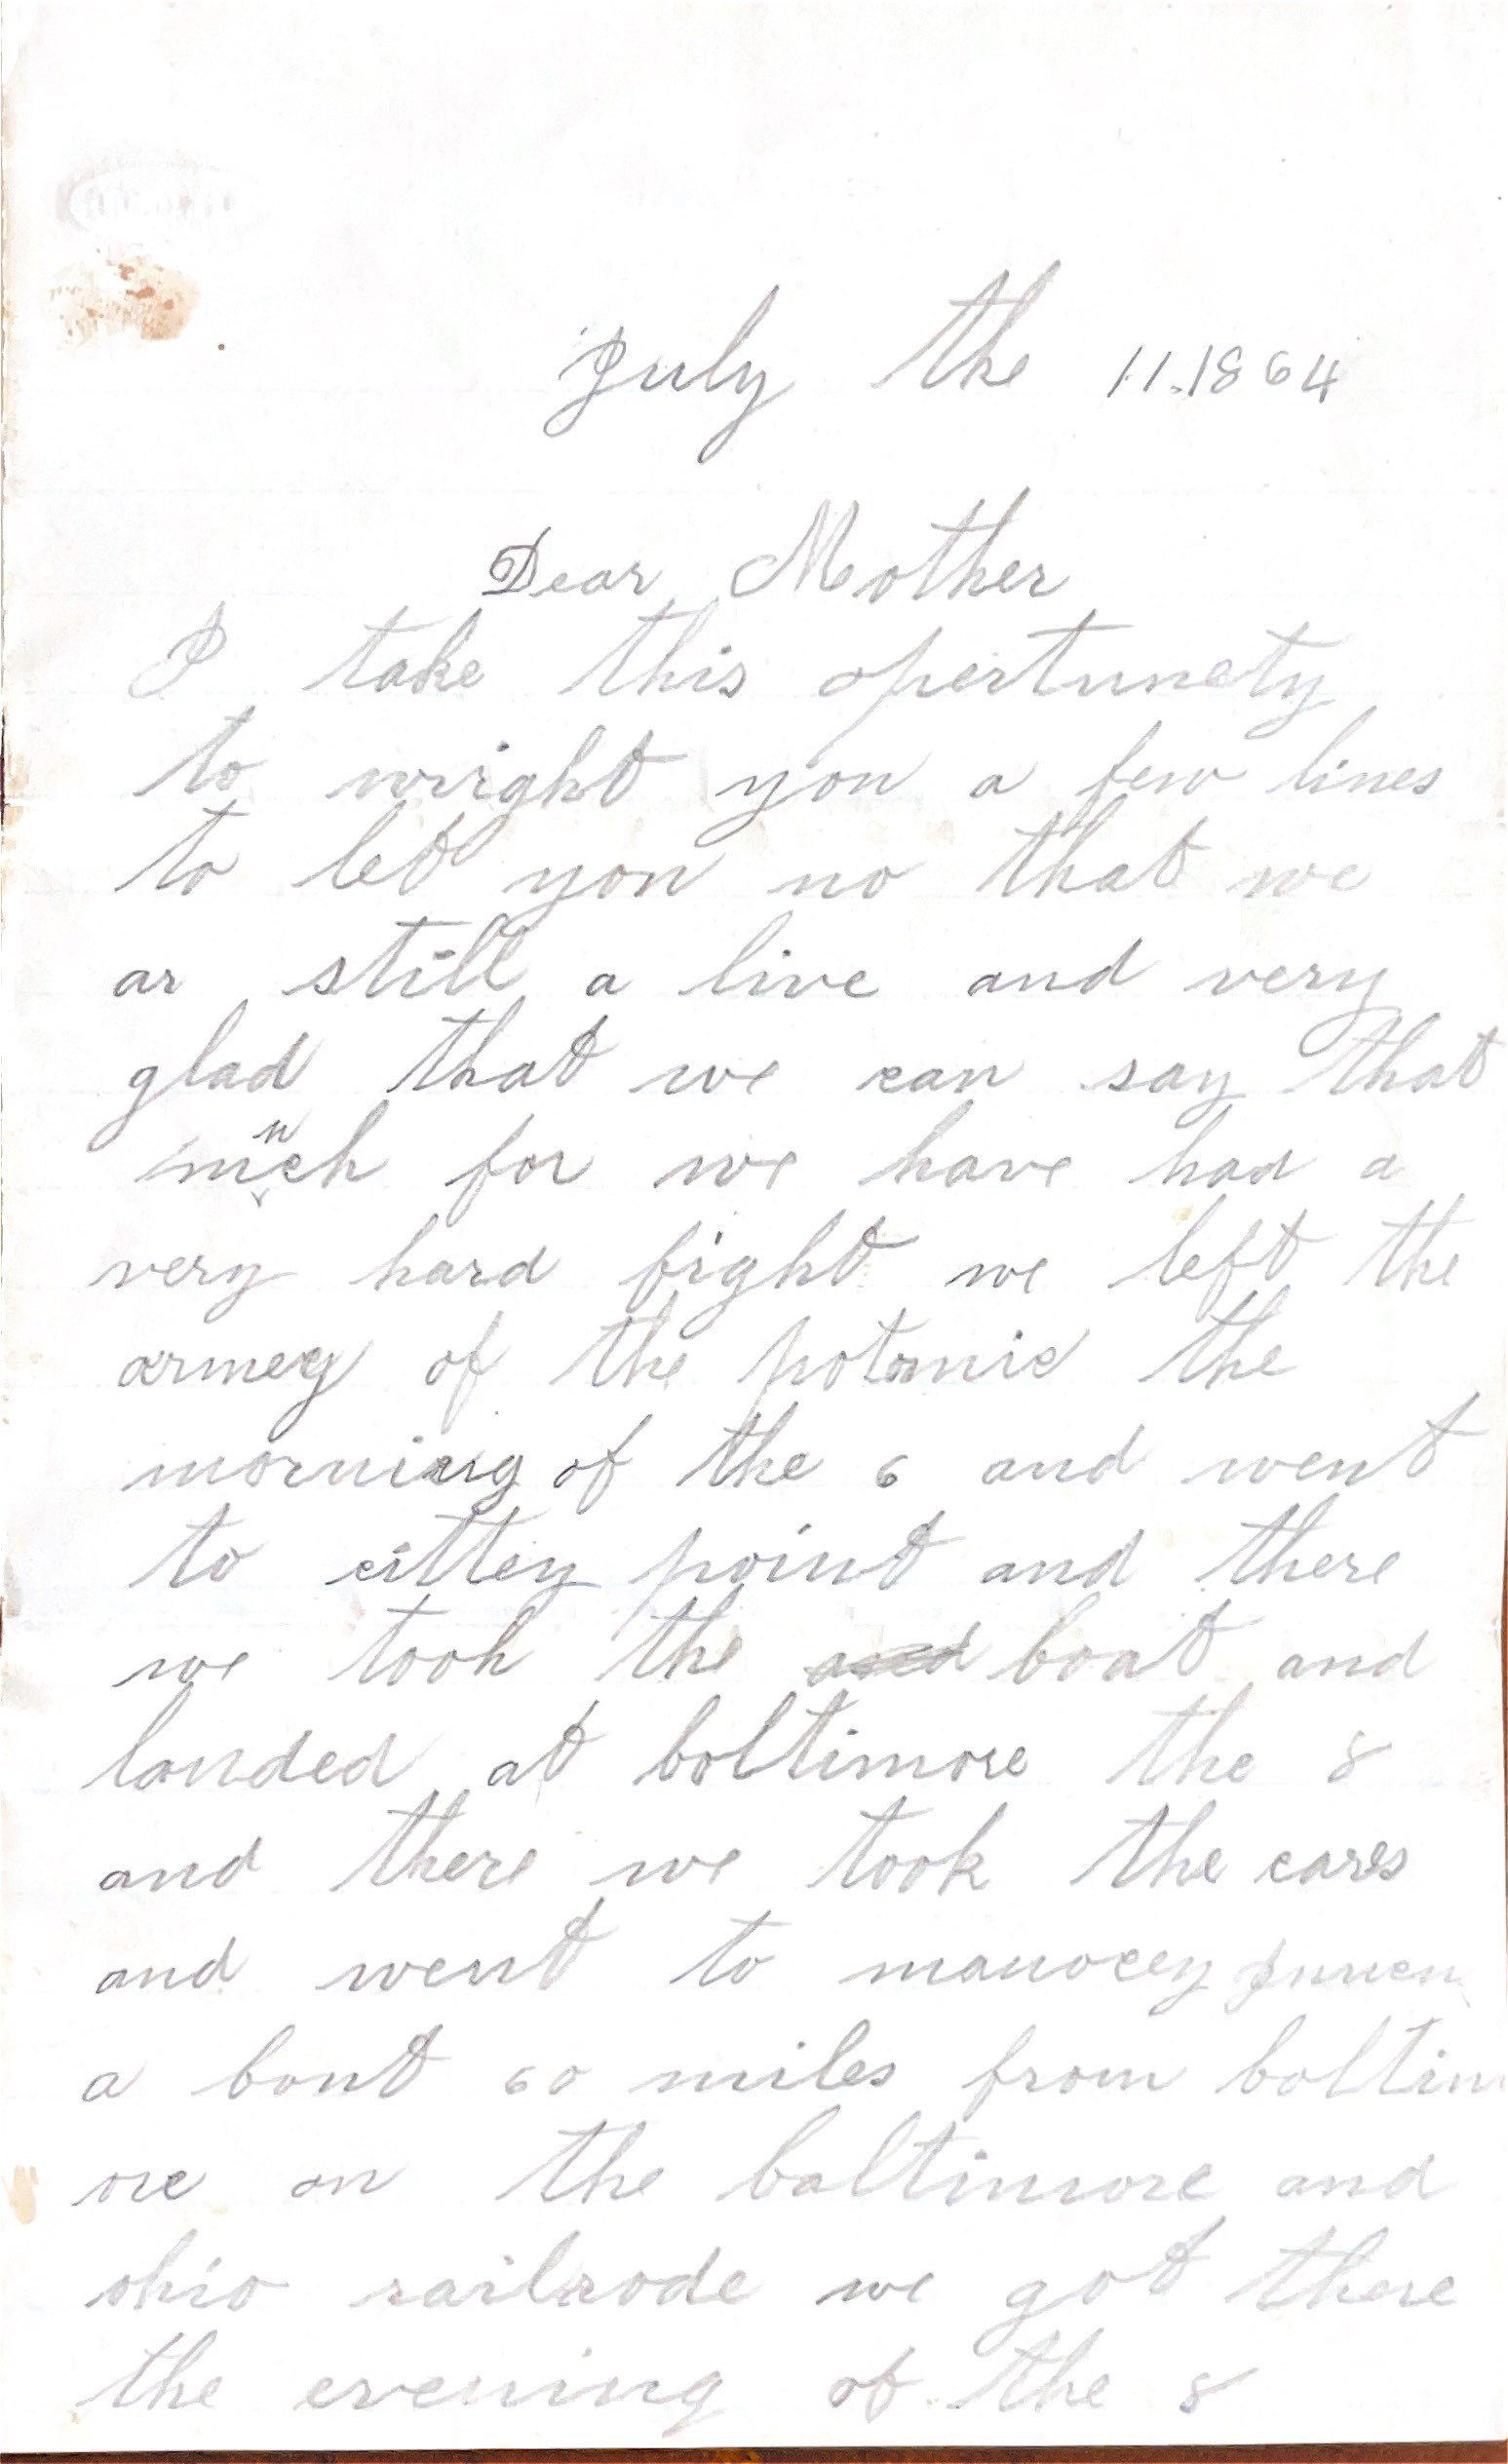 July the 11.1864
Dear Mother
I take this opertunety
to wright you a few lines
to let you no that we
ar still a live and very
glad that we can say that
much for we have had a
very hard fight we left the
armey of the potomic the
morning of the 6 and went
to cittey point and there
we took the and boat and
landed at boltimore the 8
and there we took the cares
and went to manocey
a bout 60 miles from boltim
ore on the baltimore and
ohio railrode we got there
the evening of the 8